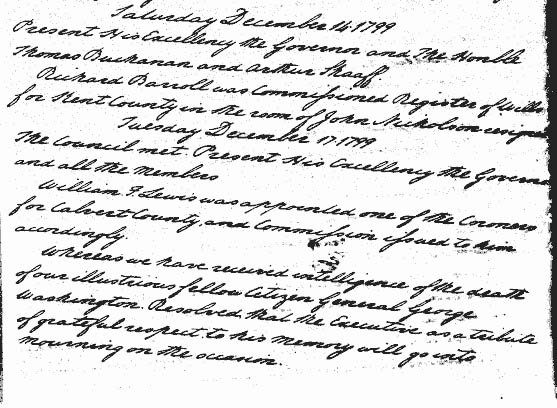 Saturday December 14 1799
Present His Excellency the Governor and The Honble
Thomas Buchanan and Arthur Shaaff
Richard Barroll was Commissioned Register of Wills
for Kent County in the room of John Nicholson resigned
Tuesday December 17 1799
The Council met. Present His Excellency the Governor
and all the Members
William F. Lewis was appointed one of the Coroners
for Calvert County, and Commission issued to him
acordingly.
Whereas we have received intelligence of the death
of our illustrious fellow Citizen General George
Washington. Resolved, that the Executive as a tribute
of grateful respect to his memory will go into
mourning on the occasion.